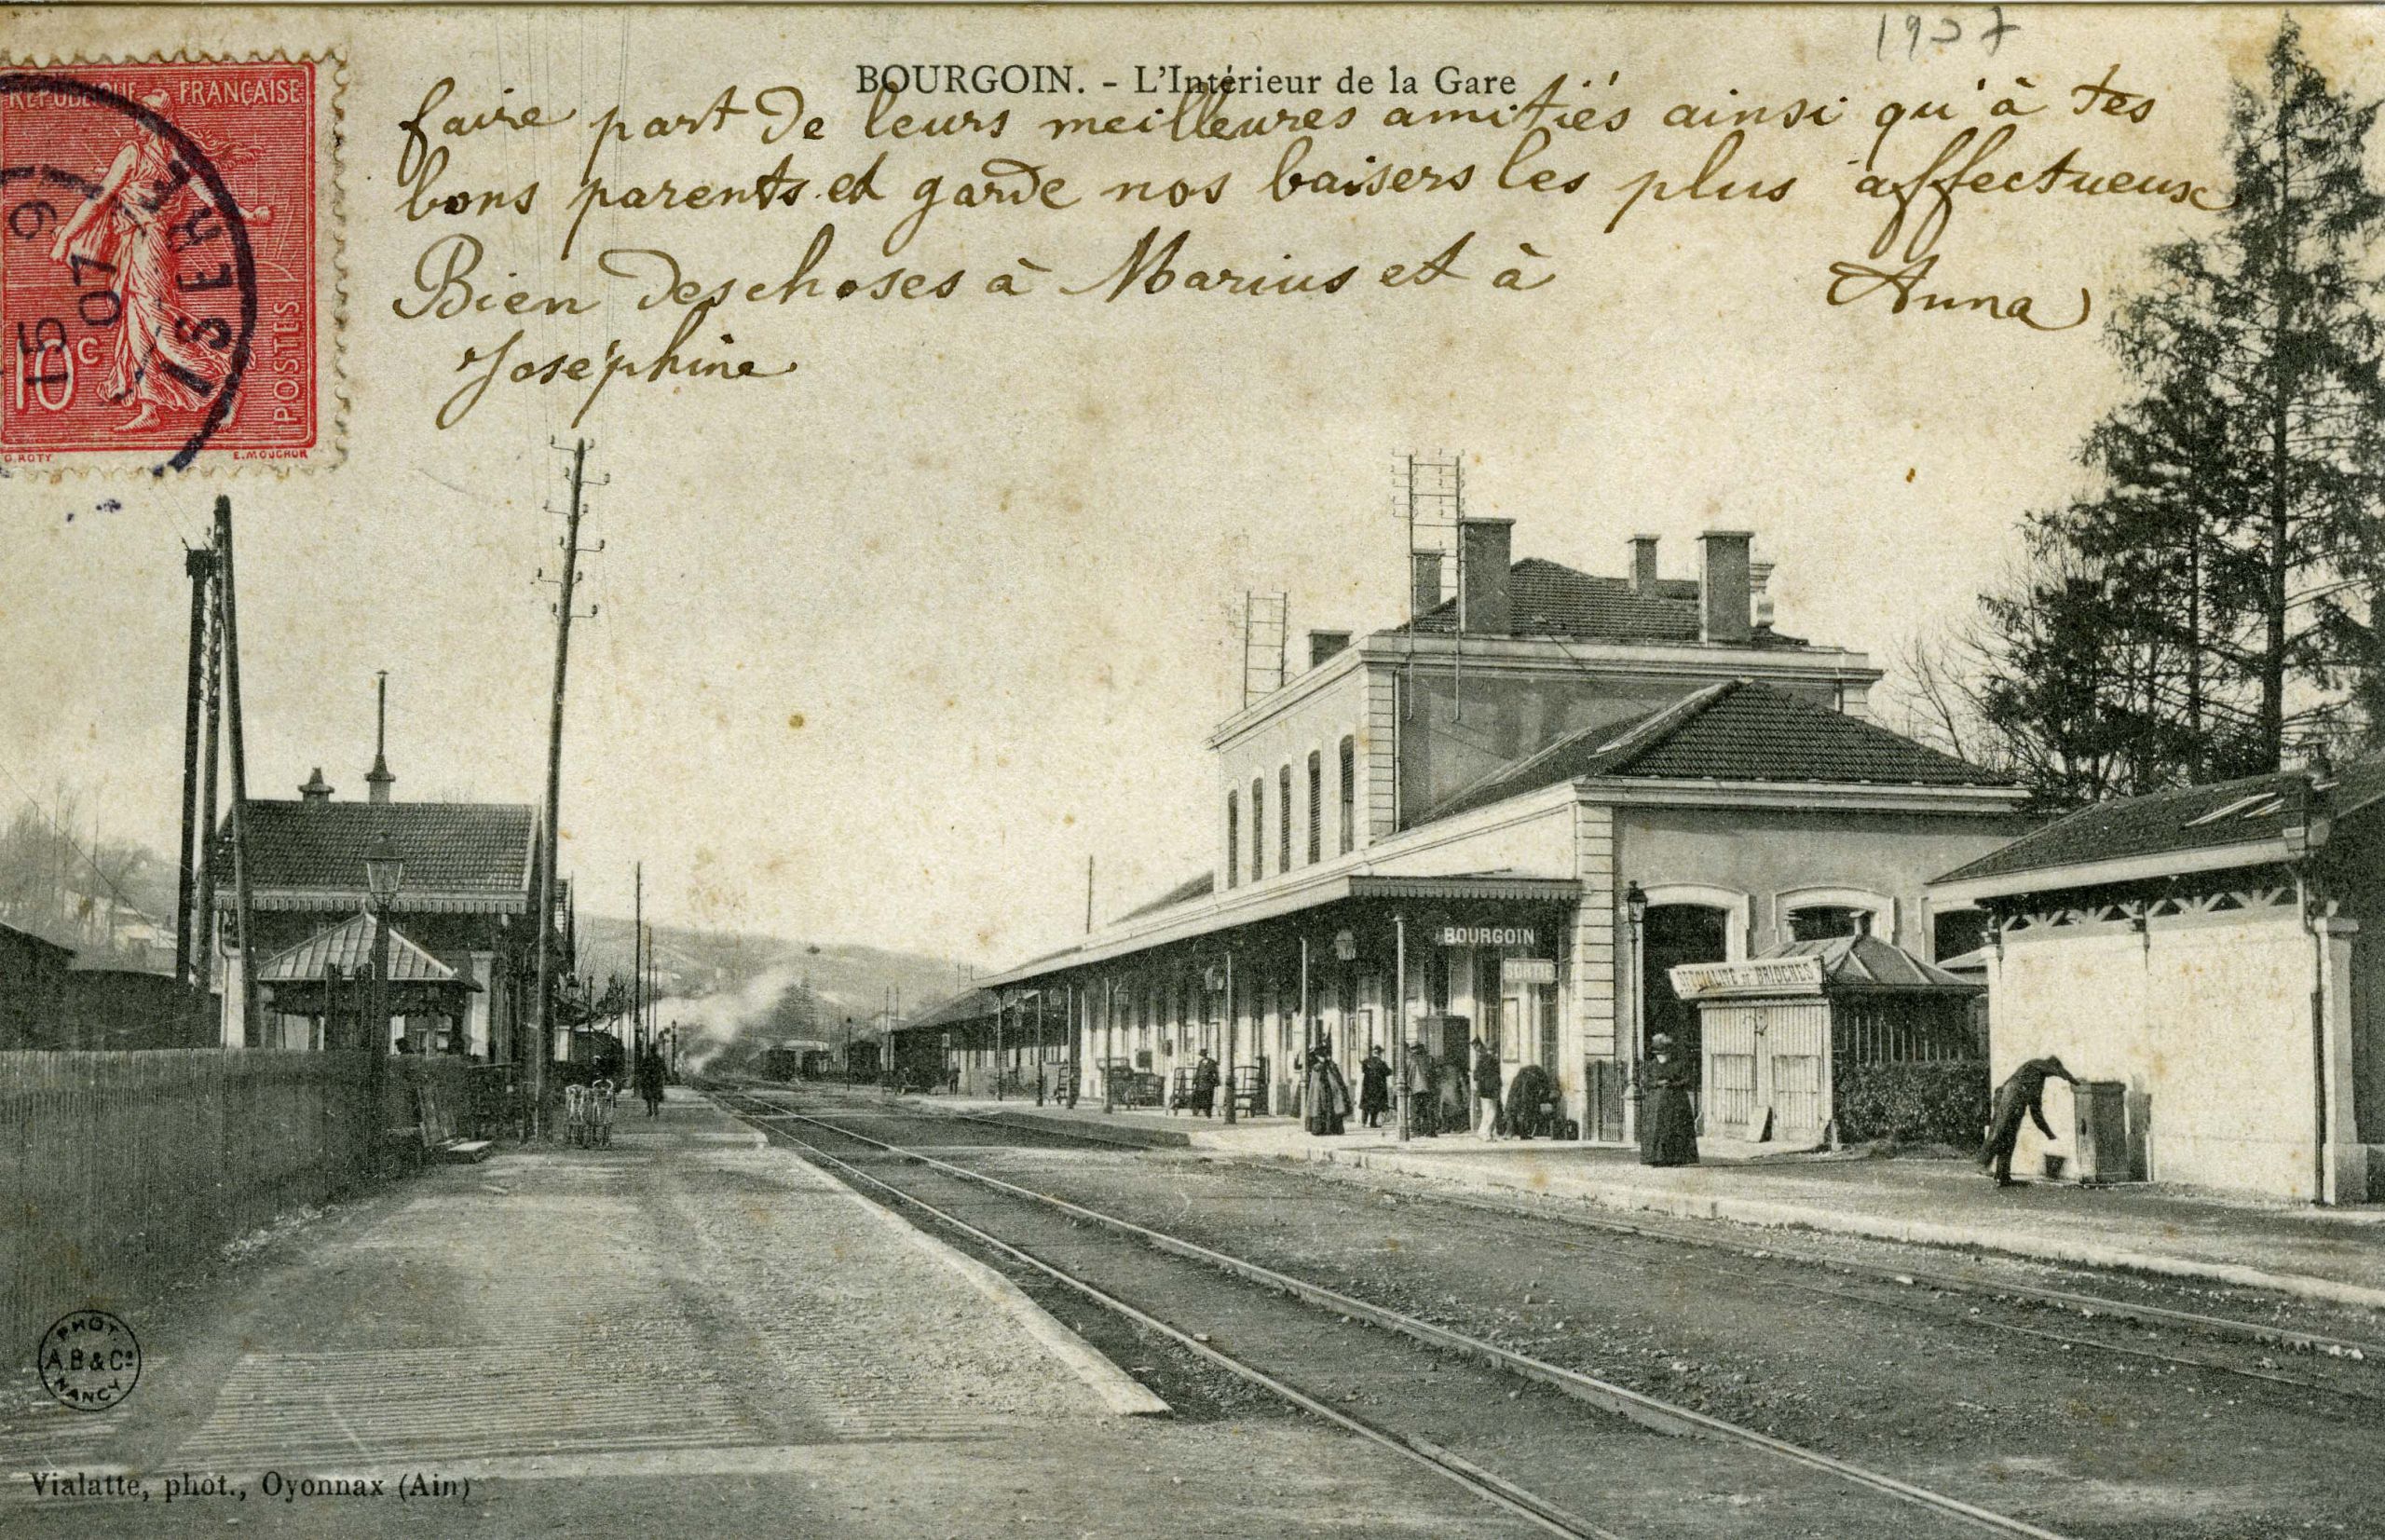 1907
BOURGOIN. - L'Intérieur de la Gare
RÉPUBLIQUE FRANÇAISE
POSTES
10c
O. ROTY
E. MOUCHON
ISERE
15
07
faire part de leurs meilleures amitiés ainsi qu'à tes
bons parents et garde nos baisers les plus affectueux
Bien des choses à Marius et à
Joséphine
Anna
BOURGOIN
SORTIE
SPÉCIALITÉ DE BRIOCHES
PHOT.
A.B & Cie
NANCY
Vialatte, phot., Oyonnax (Ain)